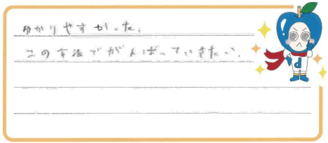 わかりやすかった。
この方法でがんばっていきたい。